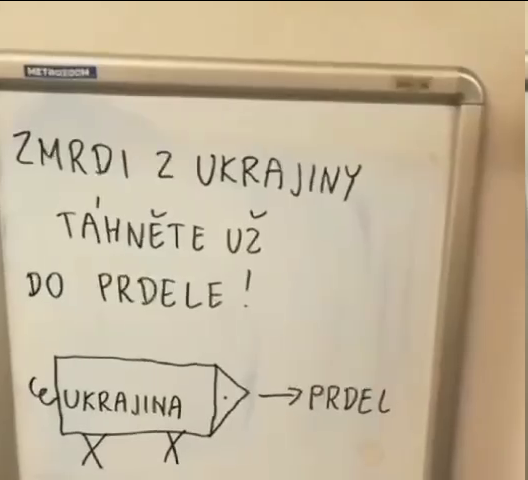 METROZOOM
ZMRDI Z UKRAJINY
TÁHNĚTE UŽ
DO PRDELE!
UKRAJINA → PRDEL